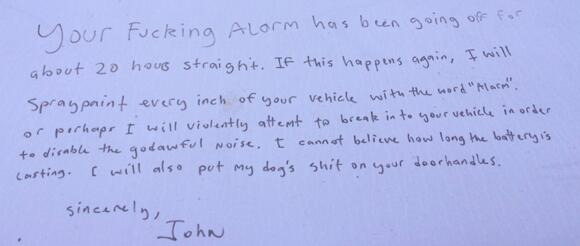 Your Fucking Alorm has been going off for
about 20 hours straight. IF this happens again, I will
Spraypaint every inch of your vehicle with the word "Alarm".
or perhaps I will violently attemt to break in to your vehicle in order
to disable the godawful noise. I cannot believe how long the battery is
lasting. I will also put my dog's shit on your doorhandles.
sincerely,
John